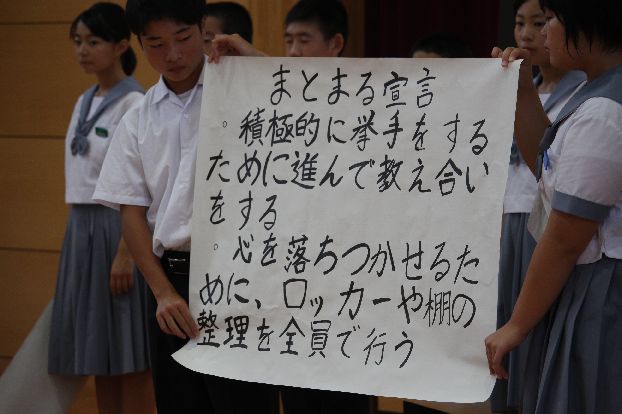 まとまる宣言
。積極的に挙手をする
ために進んで教え合い
をする
。心を落ちつかせるた
めに、ロッカーや棚の
整理を全員で行う